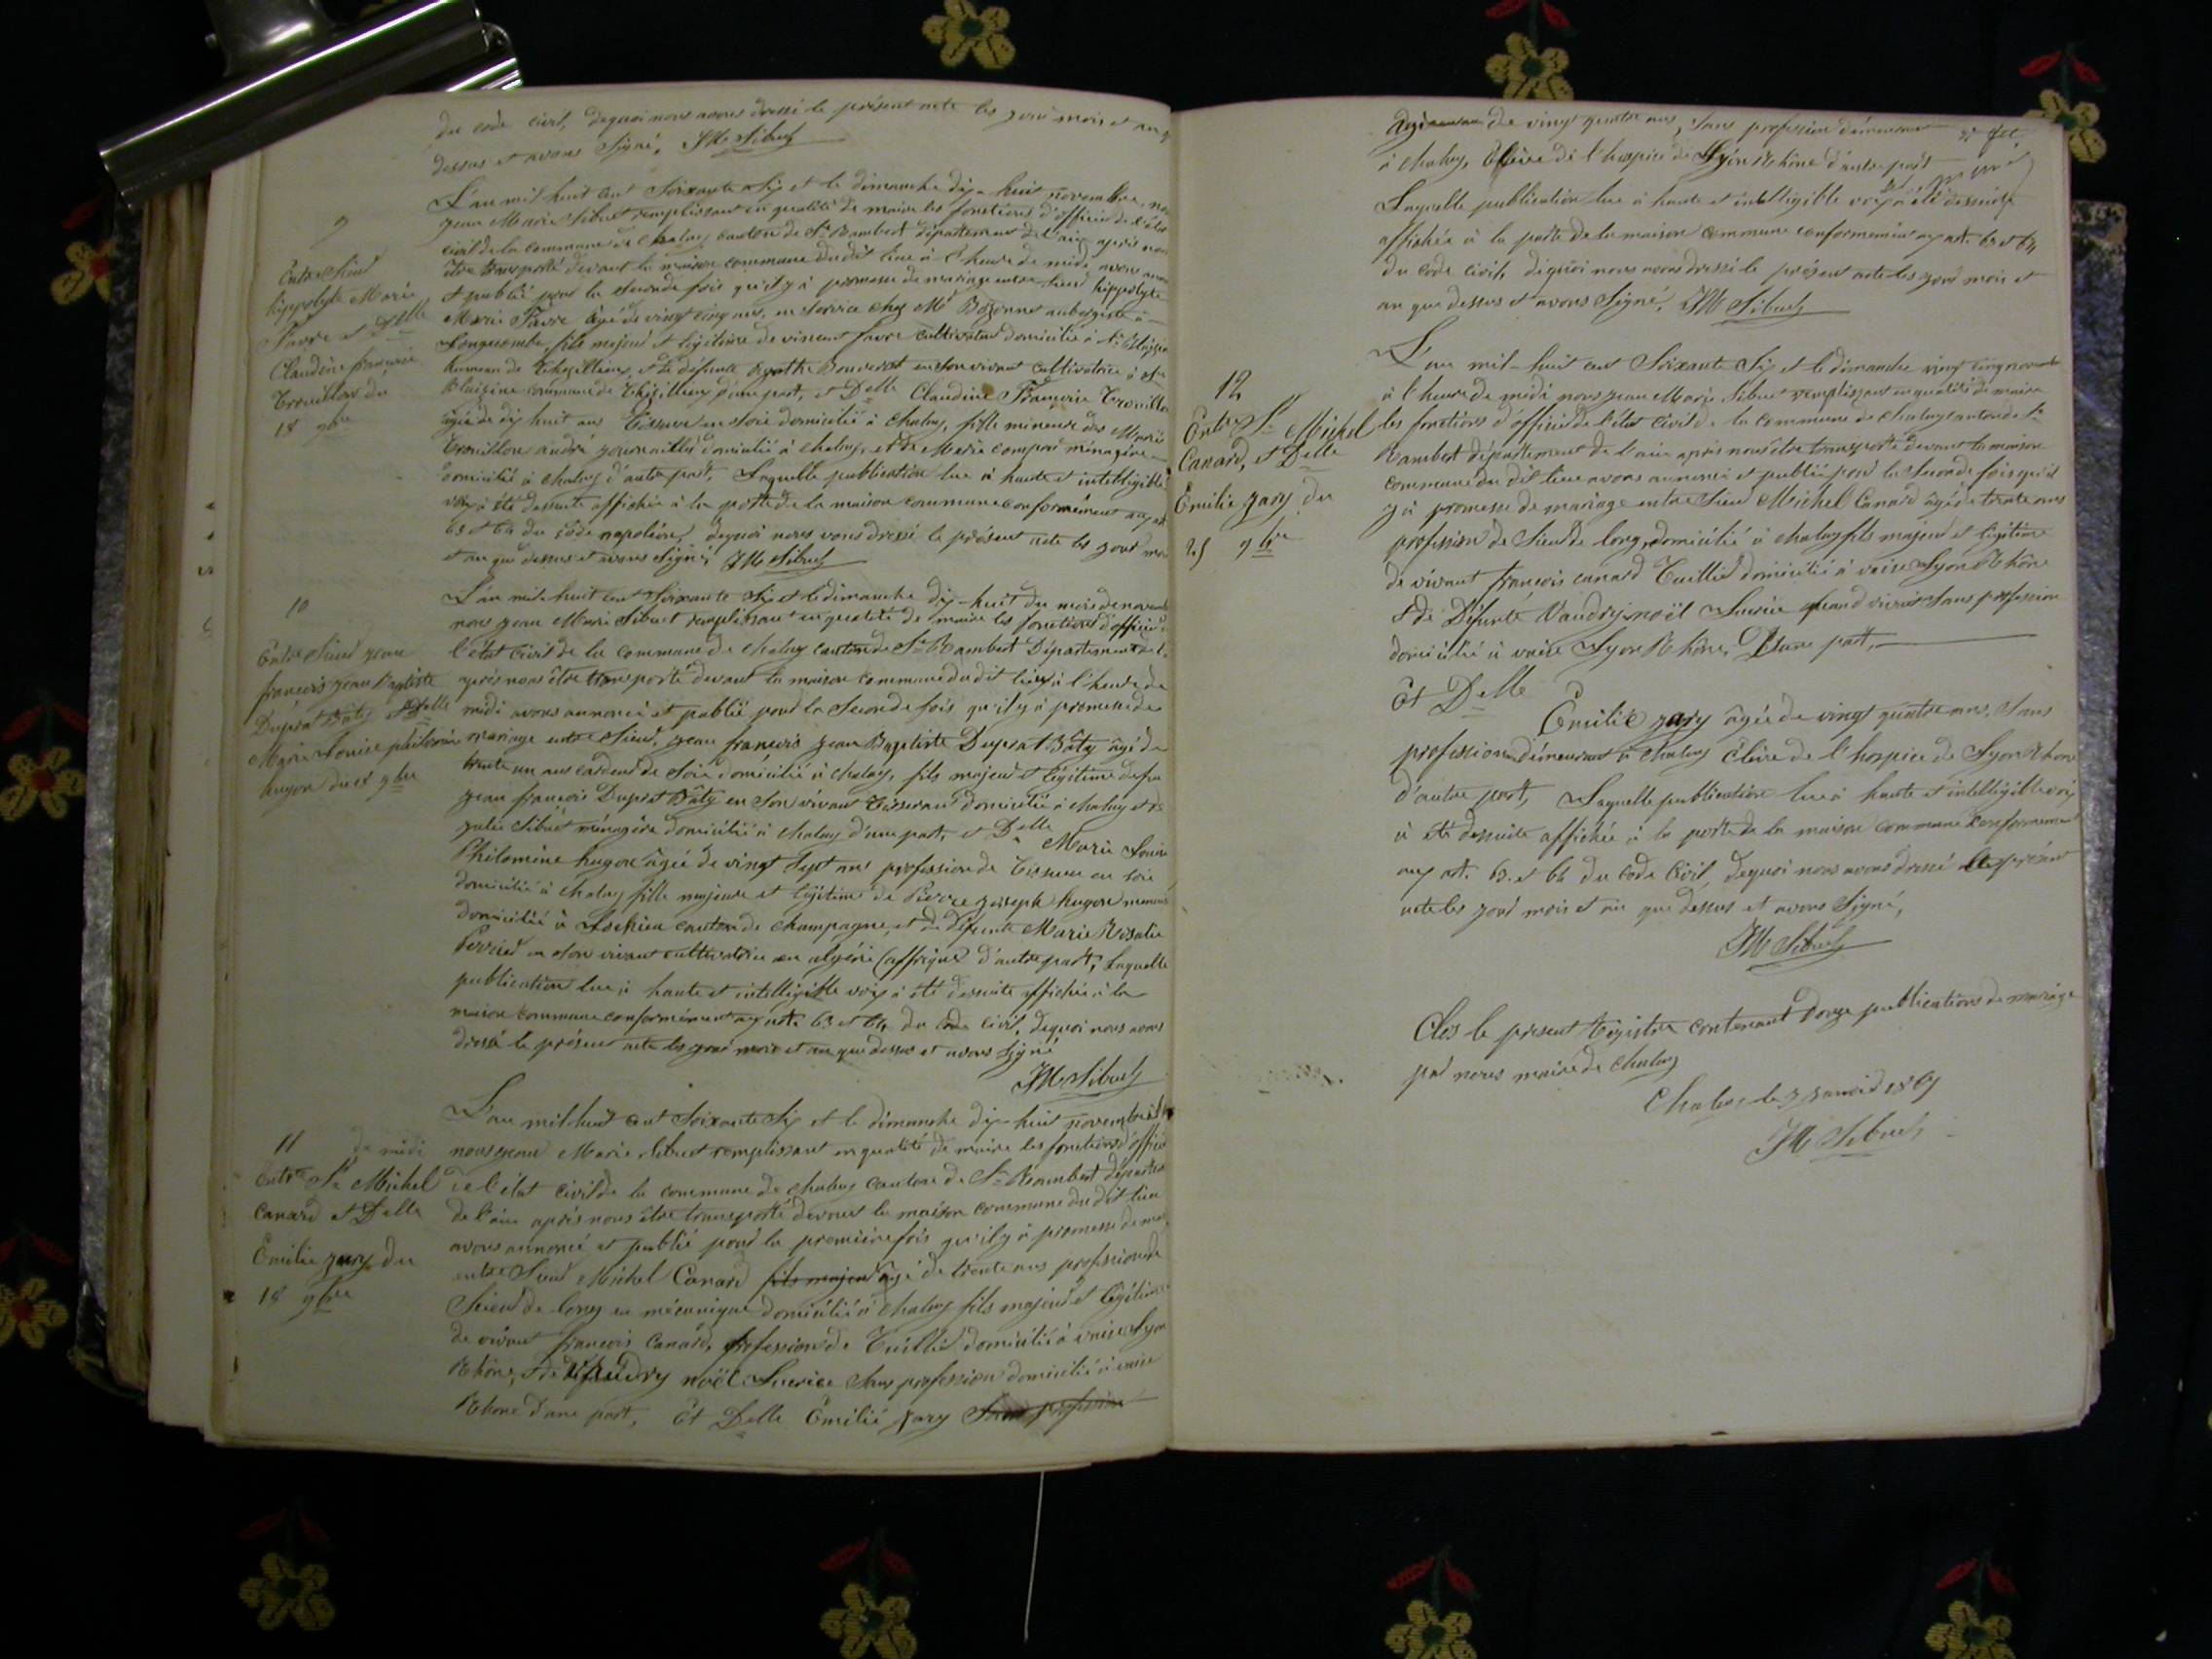 du code civil, dequoi nous avons dressé le présent acte les jour mois et an q
dessus et avons Signé, JM Sibuet
9
Entre Sieur
hippolyte Marie
Favre et Delle
Claudine françoise
Trouillon du
18 9bre
L'an mil huit cent Soixante Six et le dimanche dix-huit novembre, nou
jean Marie Sibuet remplissant en qualité de maire les fonctions d'officier de l'état
civil de la commune de Chaley canton de St Rambert département de l'ain après nous
être transporté devant la maison commune du dit lieu à l'heure de midi avons annon
et publié pour la Seconde fois qu'il y à promesse de mariage entre Sieur hippolyte
Marie Favre âgé de vingt cinq ans, en Service chez Mr Bozonnet aubergiste à
Longecombe, fils majeur et légitime de vincent favre cultivateur domicilié à St
hameau de Thézillieu, et de défunte Agathe Bouverat en son vivant cultivatrice à Ste
Blaizine commune de Thézillieu d'une part, et Delle Claudine Françoise Trouillon
âgée de dix huit ans Tisseuse en soie domicilié à chaley, fille mineure des Mariés
Trouillon andré journaillé domicilié à chaley, et de Marie compar ménagère
domicilié à chaley d'autre part, Laquelle publication lue à haute et intelligible
voix à été dessuite affichée à la porte de la maison commune conformément aux art
63 et 64 du code napoléon, dequoi nous vons dressé le présent acte les jour moi
et an que dessus et avons Signé, JM Sibuet
10
Entre Sieur jean
françois jean Baptiste
Duprat Bâty et Delle
Marie Louise philomène
hugon du 18 9bre
L'an mil huit cent Soixante Six et le dimanche dix-huit du mois de novemb
nous jean Marie Sibuet remplissant en qualité de maire les fonctions d'officier
l'état civil de la commune de chaley canton de St Rambert Département de l
après nous être transporté devant la maison commune du dit lieu à l'heure de
midi avons annoncé et publié pour la Seconde fois qu'il y à promesse de
mariage entre Sieur, jean françois jean Baptiste Duprat Bâty âgé de
trente un ans cardeur de Soie domicilié à chaley, fils majeur et légitime de feu
jean françois Duprat Bâty en Son vivant Tisserand domicilié à chaley et de
julie Sibuet ménagère domicilié à chaley d'une part, et Delle Marie Louise
Philomène hugon âgée de vingt Sept ans profession de Tisseuse en soie
domicilié à chaley fille majeure et légitime de Pierre joseph hugon
domicilié à Lochieu canton de Champagne, et de Défunte Marie Rosalie
Perrier en Son vivant cultivatrice en algérie (affrique) d'autre part, Laquelle
publication lue à haute et intelligible voix à été dessuite affichée à la
maison commune conformément aux arts 63 et 64 du code civil, dequoi nous avons
dressé le présent acte les jour mois et an que dessus et avons Signé
JM Sibuet
11
Entre Sr Michel
Canard et Delle
Emilie jary du
18 9bre
L'an mil huit cent Soixante Six et le dimanche dix-huit novembre à l'h
de midi nous jean Marie Sibuet remplissant en qualité de maire les fonctions d'officier
de l'état civil de la commune de chaley canton de St Rambert départem
de l'ain après nous être transporté devant la maison commune du dit lieu
avons annoncé et publié pour la première fois qu'il y à promesse de mar
entre Sieur Michel Canard fils majeur âgé de trente ans profession de
Scieur de long en mécanique domicilié à chaley fils majeur et légitime
de vivant françois canard, profession de Tuillier domicilié à vaise Lyon
Rhône, et de Vaudry noël Lucrice Sans profession domicilié à vaise
Rhône d'une part, Et Delle Emilié jary Sans profession
âgé de vingt quatre ans, Sans profession démeurant
à chaley, Elève de l'hospice de Lyon Rhône d'autre part
Laquelle publication lue à haute et intelligible voix à été dessuite
affichée à la porte de la maison commune conformément aux art. 63 et 64
du code civil, dequoi nous avons dressé le présent acte les jour mois et
an que dessus et avons Signé, JM Sibuet
12
Entre Sr Michel
Canard, et Delle
Emilie jary du
25 9bre
L'an mil-huit cent Soixante Six et le dimanche vingt cinq novembre
à l'heure de midi nous jean Marie Sibuet remplissant en qualité de maire
les fonctions d'officier de l'état civil de la commune de chaley canton de St
Rambert département de l'ain après nous être transporté devant la maison
commune du dit lieu avons annoncé et publié pour la Seconde fois qu'il
y à promesse de mariage entre Sieur Michel Canard âgé de trente ans
profession de Sieur de long, domicilié à chaley fils majeur et légitime
de vivant françois canard Tuillier domicilié à vaise Lyon Rhône
et de Défunte Vaudry noël Lucrice quand vivait Sans profession
domicilié à vaise Lyon Rhône, D'une part,
Et Delle
Emilié jary âgée de vingt quatre ans, Sans
profession démeurant à chaley Elève de l'hospice de Lyon Rhône
d'autre part, Laquelle publication lue à haute et intelligible voix
à été dessuite affichée à la porte de la maison commune conformément
aux art. 63. et 64 du code civil, dequoi nous avons dressé le présent
acte les jour mois et an que dessus et avons Signé,
JM Sibuet
Clos le présent Régistre contenant Douze publications de mariage
par nous maire de Chaley
Chaley le 3 janvier 1867
JM Sibuet